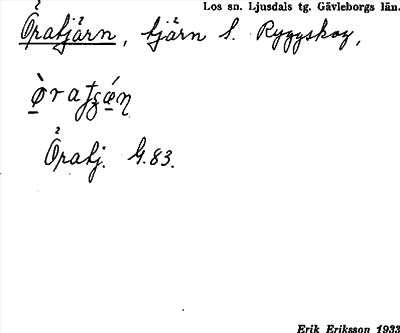 Los sn. Ljusdals tg. Gävleborgs län.
Öratjärn, tjärn S. Ryggskog,
Öratj. G.83.
Erik Eriksson 1933